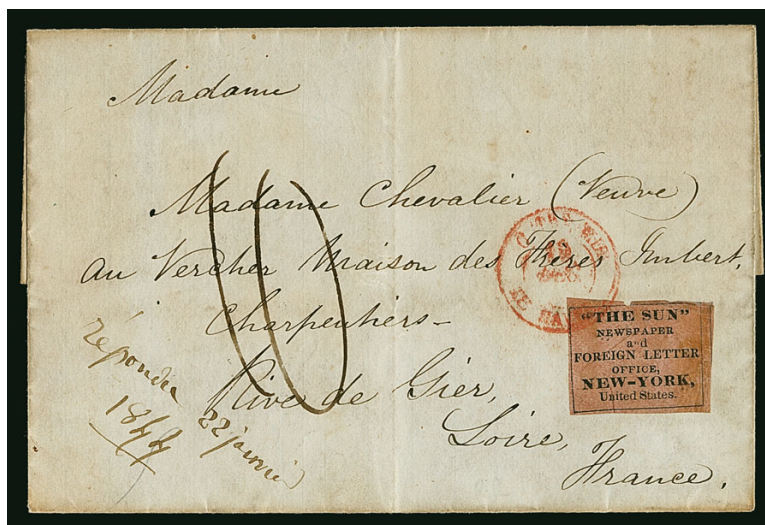 Madame
Madame Chevalier (Veuve)
au Vercher Maison des Frères Imbert,
Charpentiers-
Rive de Gier,
Loire,
France.
répondu 22 janvier
1844
10
OUTRE MER
19
LE HAVRE
"THE SUN"
NEWSPAPER
and
FOREIGN LETTER
OFFICE,
NEW-YORK,
United States.